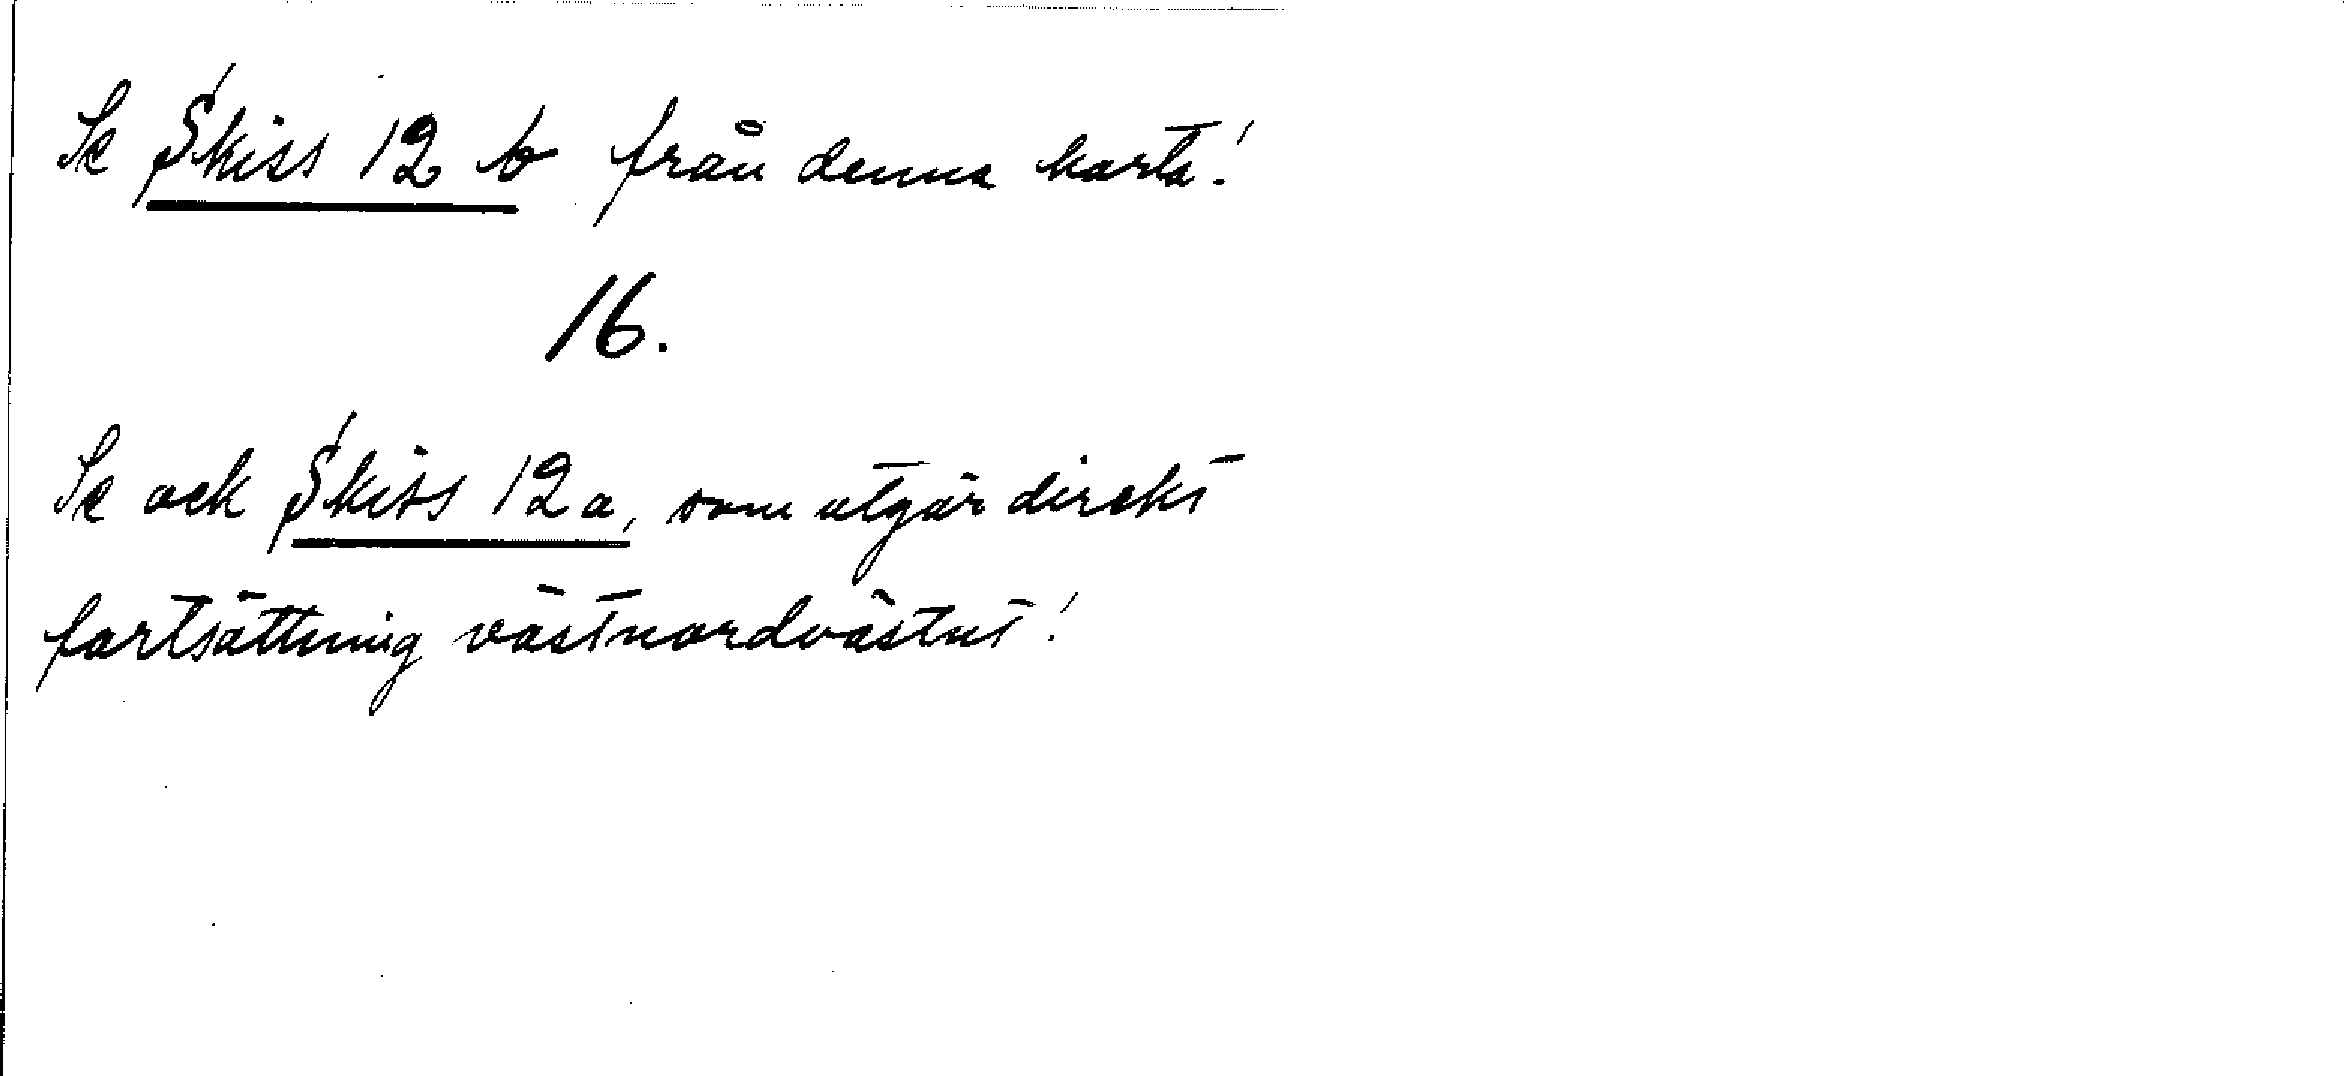 Se Skiss 12 b från denna karta!
16.
Se ock Skiss 12a, som utgör direkt
fortsättning västnordvästut!